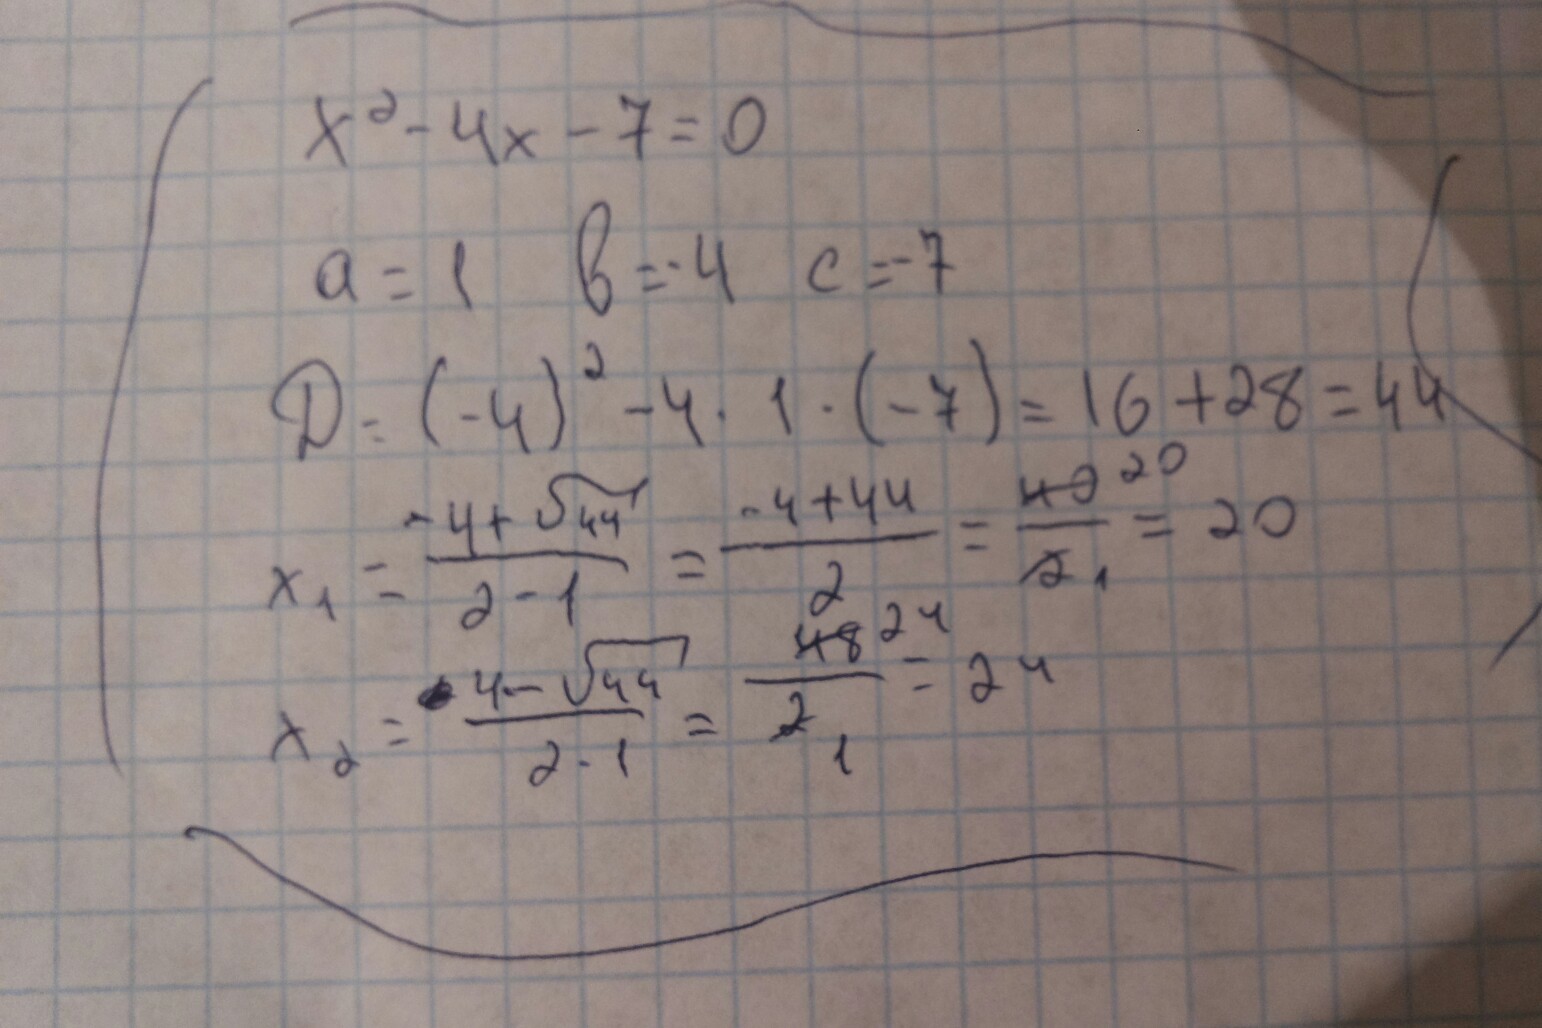 x² - 4x - 7 = 0
a = 1 b = -4 c = -7
D = (-4)² - 4 · 1 · (-7) = 16 + 28 = 44
x₁ = (-4 + √44)/(2 - 1) = (-4 + 44)/2 = 40 20/2 1 = 20
x₂ = (4 - √44)/(2 · 1) = 48 24/2 1 = 24